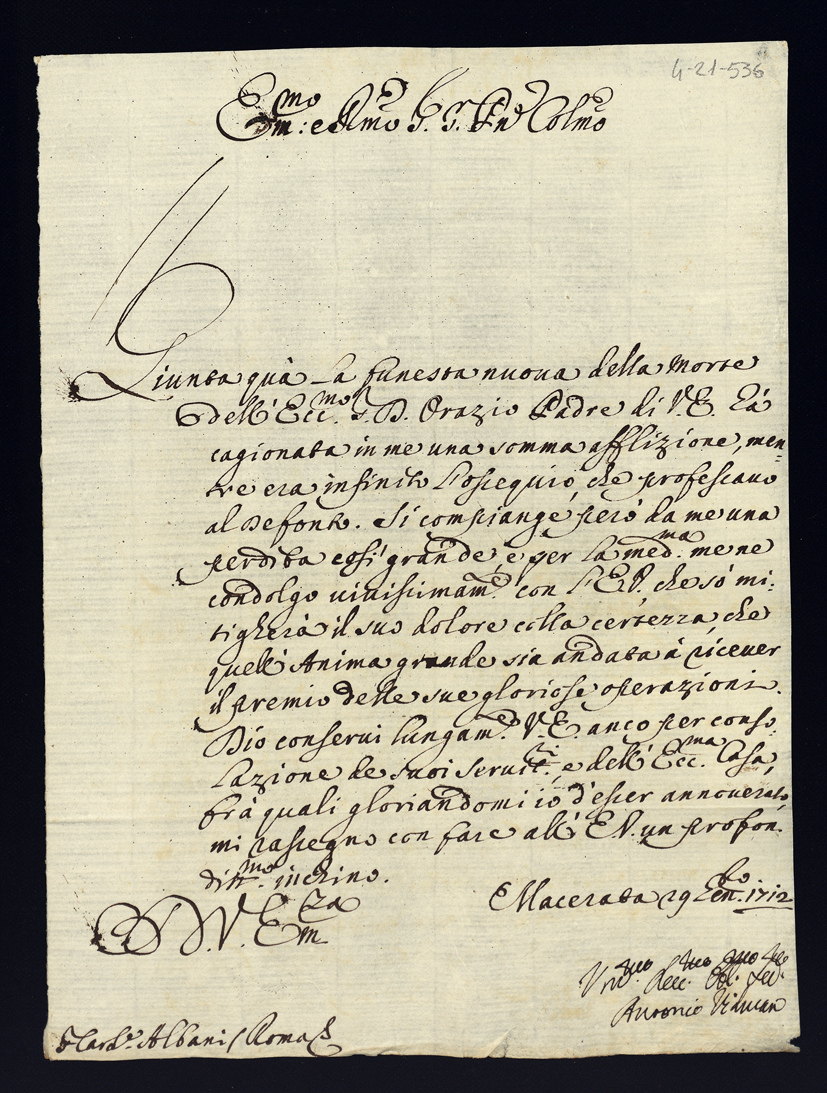 4-21-536
Em:mo e Rmo S. S. Pne Colmo
Giunta quà la funesta nuova della Morte
dell' Ecc.mo S. D. Orazio Padre di V.E. hà
cagionata in me una somma afflizione, men=
tre era infinito l'ossequio, che professavo
al Defonto. Si compiange però da me una
perdita così grande, e per la med.ma me ne
condolgo vivissimam.te con l'E.V. che sò mi=
tigherà il suo dolore colla certezza, che
quell'Anima grande sia andata à ricever
il premio delle sue gloriose operazioni.
Dio conservi lungam.te V.E. anco per conso=
lazione de suoi servit.ri, e dell' Ecc.ma Casa,
frà quali gloriandomi io d'esser annoverato,
mi rassegno con fare all' E.V. un profon=
diss.mo inchino.
Macerata 29 Gen.ro 1712
D. V. Em.za
Antonio Vidman
S.r Card.e Albani / Roma